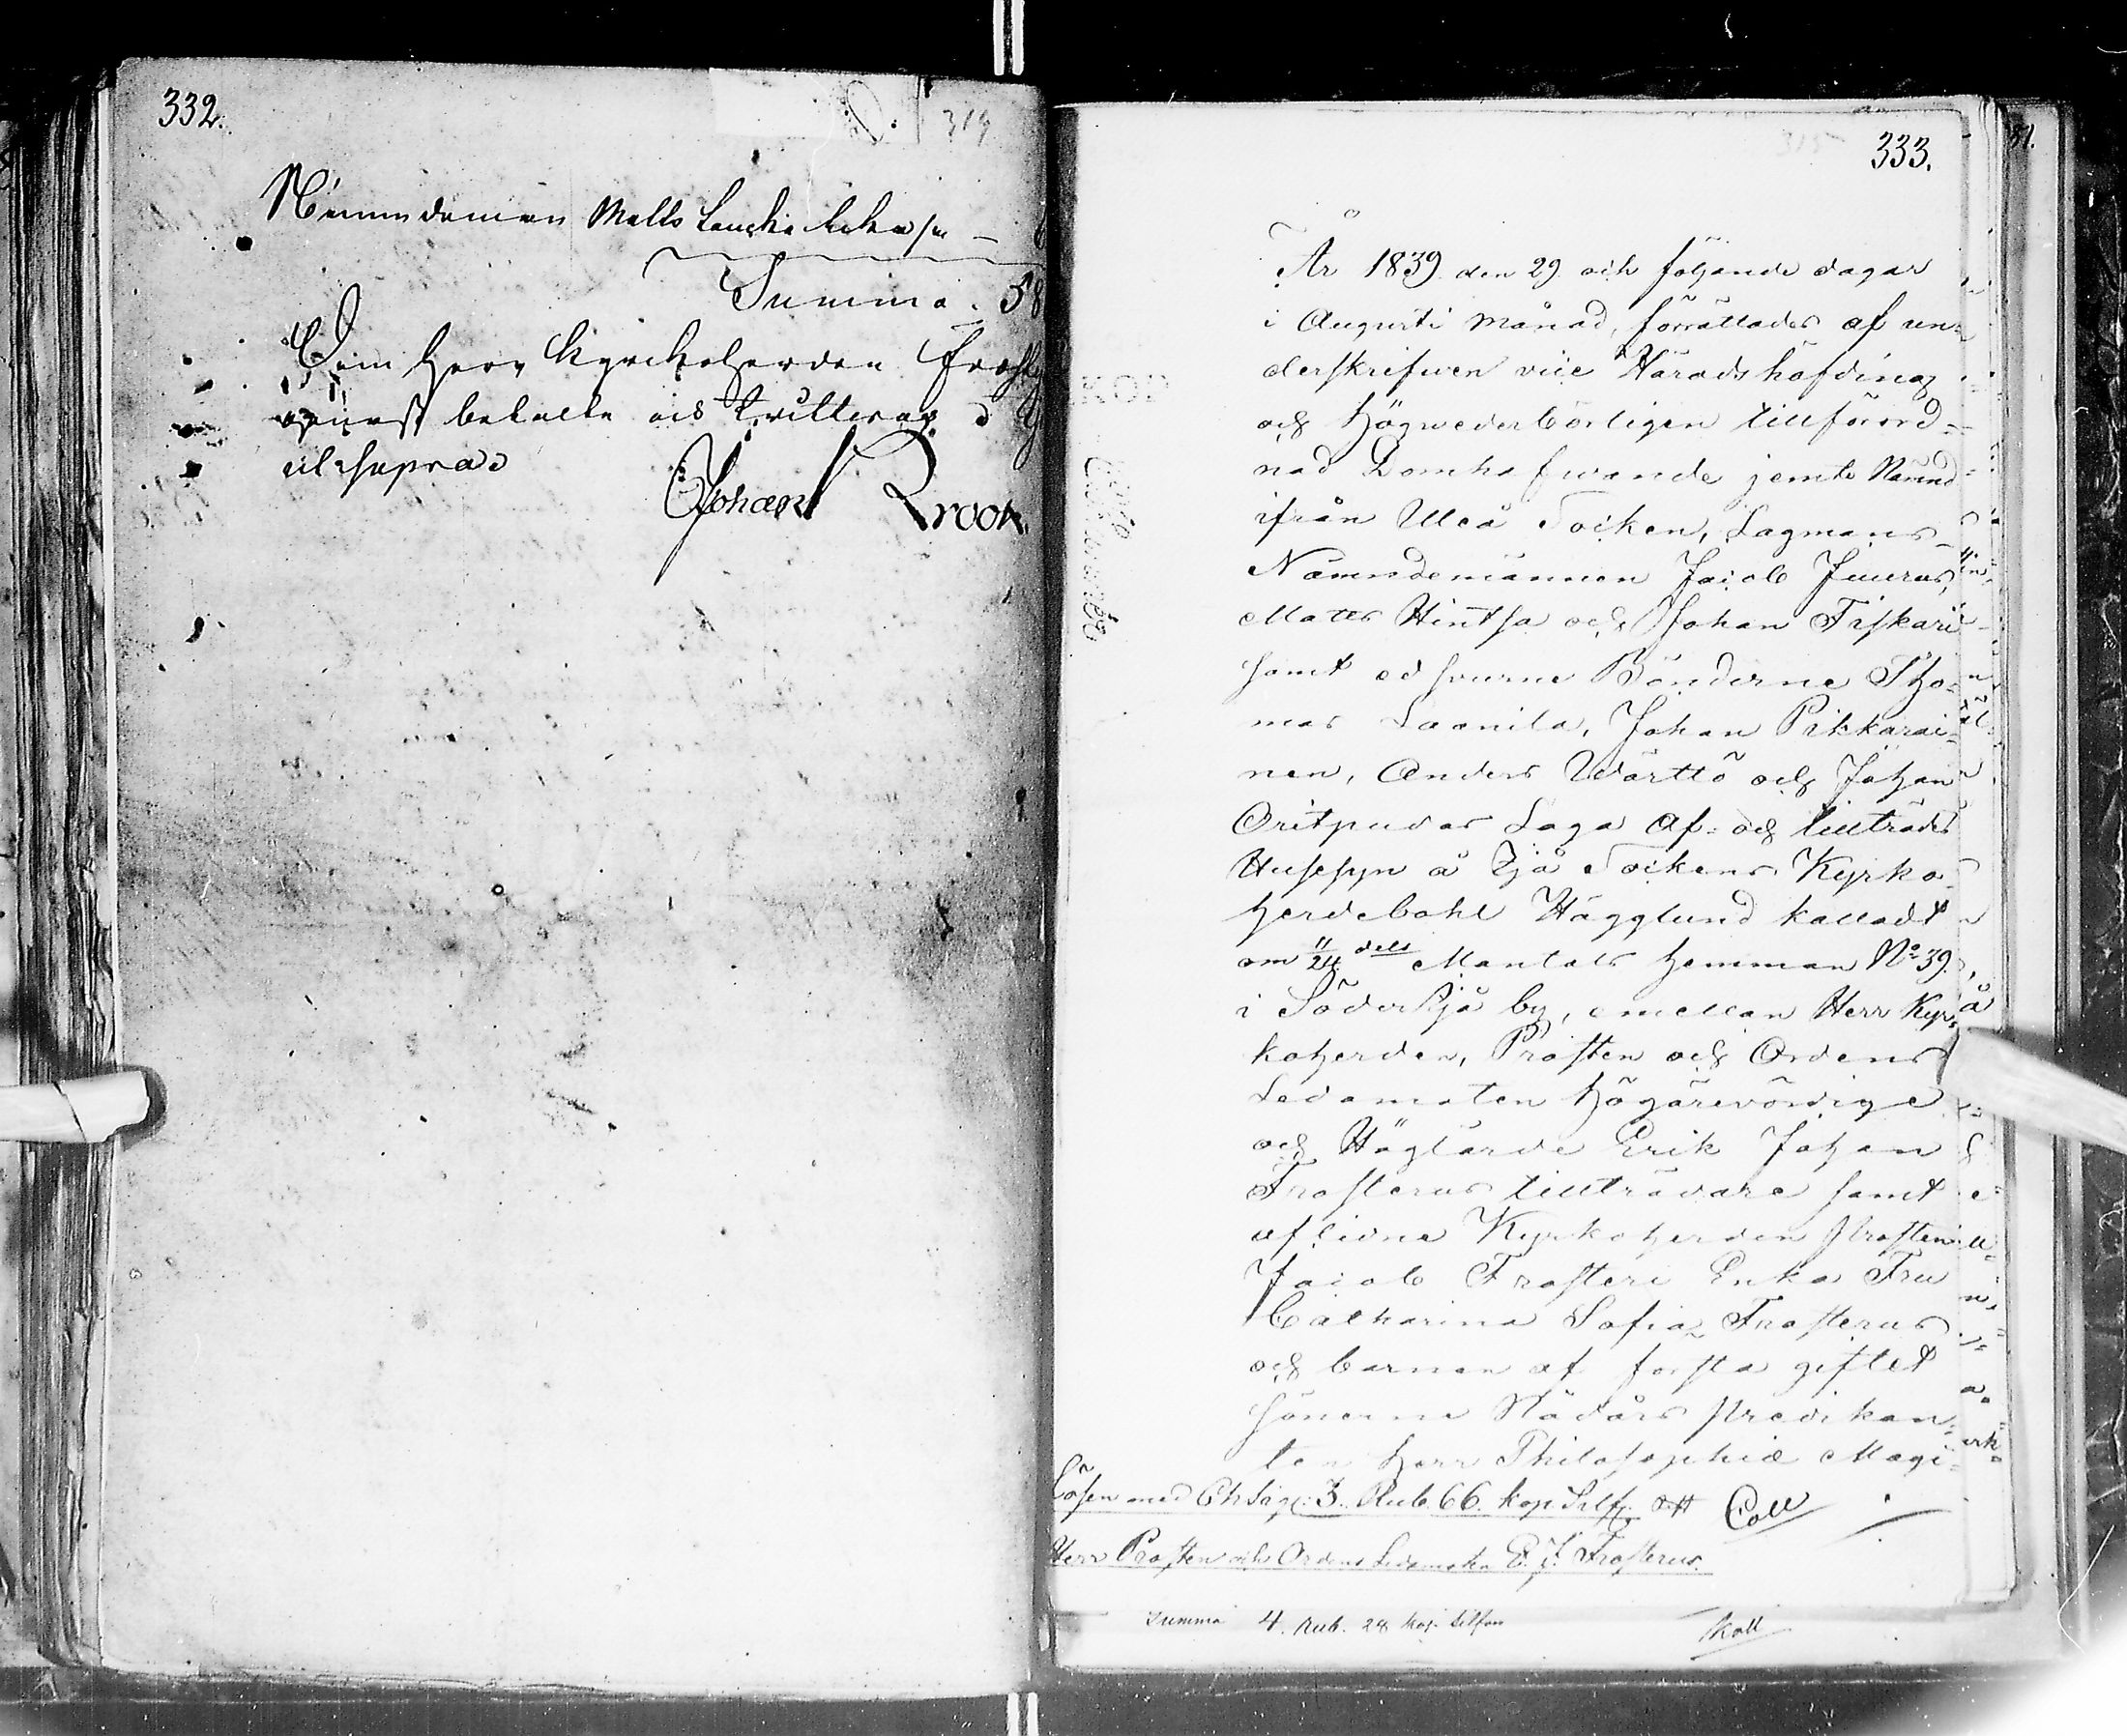 332.
319
Nämndeman Matts
Summa. 58
Herr Kyrkoherden Frost
betalte qvitteras
ut supra
Johan Krook
315
333.
År 1839 den 29 och följande dagar
i Augusti månad, förrättades af un-
derskrifven vice Häradshöfding
och högvederbörligen tillförord-
nad Domhafwande jemte Nämnd
ifrån Uleå Socken, Lagmans-
Nämndemännen Jacob Juurus,
Matts Hintsa och Johan Fiskari
samt edsvurne Bönderne Tho-
mas Laanila, Johan Pikkarai-
nen, Anders Wärttö och Johan
Oritpudas Laga Af- och tillträdes
Husesyn å Ijå Sockens Kyrko-
herdebohl Hägglund kalladt
om 11/24 dels Mantals hemman No 39.
i Söder Ijå by, emellan Herr Kyr-
koherden, Prosten och Ordens
Ledamoten högärevördige
och Höglärde Erik Johan
Frosterus tillträdare samt
aflidne Kyrkoherden Prosten
Jacob Frosteri Enka Fru
Catharina Sofia Frosterus
och barnen af första giftet
sönerne Nådårs predikan-
ten herr Philosophiæ Magi-
Lösen med Ch Sigl: 3. Rub. 66. kop Silfr. Coll
Herr Prosten och Ordens Ledamoten E. J. Frosterus.
Summa 4. Rub. 28 kop. silfver
Koll